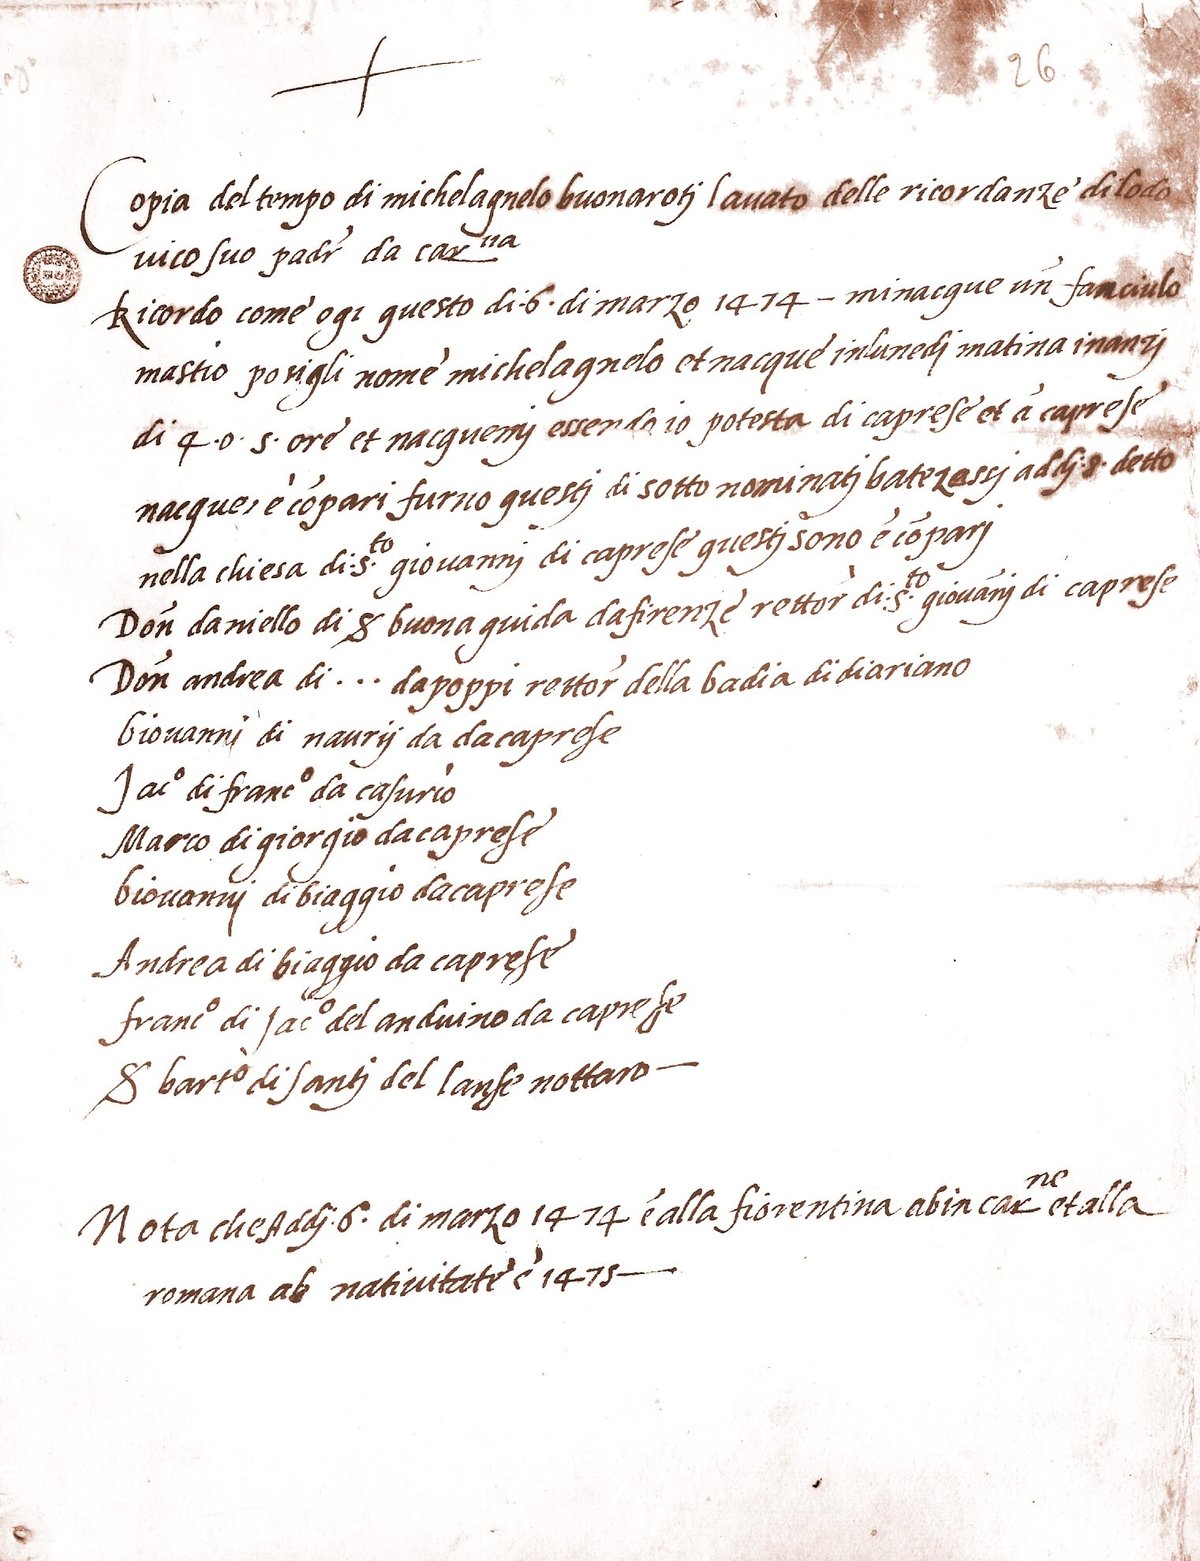 26
Copia del tempo di michelagnelo buonarotj lauato delle ricordanze di lodo
uico suo padre da car na
Ricordo come ogi questo di .6. di marzo 1474 – mi nacque un fanciulo
mastio posigli nome michelagnelo et nacque in lunedj matina inanzj
di 4. o. 5. ore et nacquemj essendo io potesta di caprese et a caprese
nacque, e cōpari furno questj di sotto nominatj batezossj addj .8. detto
nella chiesa di .s.to giouannj di caprese questj sono e cōparj
Don daniello di S buona guida da firenze rettor di .s.to giouānj di caprese
Don andrea di . . . da poppi rettor della badia di diariano
Giouannj di naurij da da caprese
Jac° di franc° da casurio
Marco di giorgio da caprese
Giouannj di biaggio da caprese
Andrea di biaggio da caprese
franc° di Jac° del anduino da caprese
S bart° di santj del lanse nottaro —
Nota che Addj .6. di marzo 1474 é alla fiorentina ab in car ne et alla
romana ab natiuitate é 1475 —